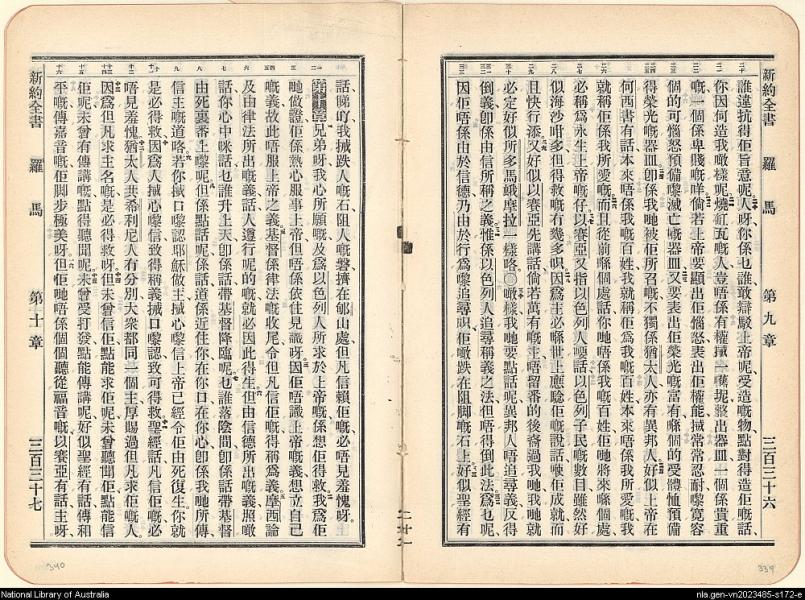 新約全書 羅馬 第九章 三百三十六
誰違抗得佢旨意呢人呀你係乜誰敢辯駁上帝呢受造嘅物點對得造佢嘅話、
你因何造我噉樣呢燒缸瓦嘅人豈唔係有權搣一嚿坭整出器皿一個係貴重
嘅一個係卑賤嘅咩倘若上帝要顯出佢惱怒表出佢權能搣常常忍耐嚟寬容
個的可惱怒預備嚟滅亡嘅器皿又要表出佢榮光嘅富有喺個的受體恤預備
得榮光嘅器皿卽係我哋被佢所召嘅不獨係猶太人亦有異邦人好似上帝在
何西書有話本來唔係我嘅百姓我就稱佢爲我嘅百姓本來唔係我所愛嘅我
就稱佢係我所愛嘅而且從前喺個處話你哋唔係我嘅百姓佢哋將來喺個處
必稱爲永生上帝嘅仔以賽亞又指以色列人嗌話以色列子民嘅數目雖然好
似海沙咁多但得救嘅有幾多呮因爲主必喺世上應驗佢嘅說話佢成就而
且快行添又好似以賽亞先講話倘若萬有嘅主唔留番的後裔過我哋我哋就
必定好似所多馬蛾摩拉一樣咯○噉樣我哋要點話呢異邦人唔追尋義反得
倒義卽係由信所稱之義惟係以色列人追尋稱義之法但唔得倒此法爲乜呢
因佢唔係由於信德乃由於行爲嚟追尋呮佢噉跌在阻脚嘅石上好似聖經有
話、睇吓我搣跌人嘅石阻人嘅磐擠在郇山處但凡信賴佢嘅必唔見羞愧呀
兄弟呀我心所願嘅及爲以色列人所求於上帝嘅係想佢得救我爲佢
哋做證佢係熱心服事上帝但唔係依住見識呀因佢唔識上帝嘅義想立自己
嘅義故此唔服上帝之義基督係律法嘅收尾令但凡信佢嘅得稱爲義摩西論
及由律法所出嘅義話人遵行呢的嘅就必因此得生但由信德所出嘅義照噉
話你心中咪話乜誰升上天卽係話帶基督降臨呢乜誰落陰間卽係話帶基督
由死裏番上嚟呢但係點話呢係話道係近住你在你口在你心卽係我哋所傳
信主嘅道咯若你搣口嚟認耶穌做主搣心嚟信上帝已經令佢由死復生你就
是必得救因爲人搣心嚟信致得稱義搣口嚟認致可得救聖經話凡信佢嘅必
唔見羞愧猶太人共希利尼人冇分別大衆都同一個主厚賜過但凡求佢嘅人
因爲但凡求主名嘅是必得救呀但未曾信佢點能求佢呢未曾聽聞佢點能信
佢呢未曾有傳講嘅點得聽聞呢未曾受打發點能傳講呢好似聖經有話、傳和
平嘅傳嘉音嘅佢脚步極美呀但佢哋唔係個個聽從福音嘅以賽亞有話主呀
新約全書 羅馬 第十章 三百三十七
340
339
National Library of Australia
nla.gen-vn2023485-s172-e